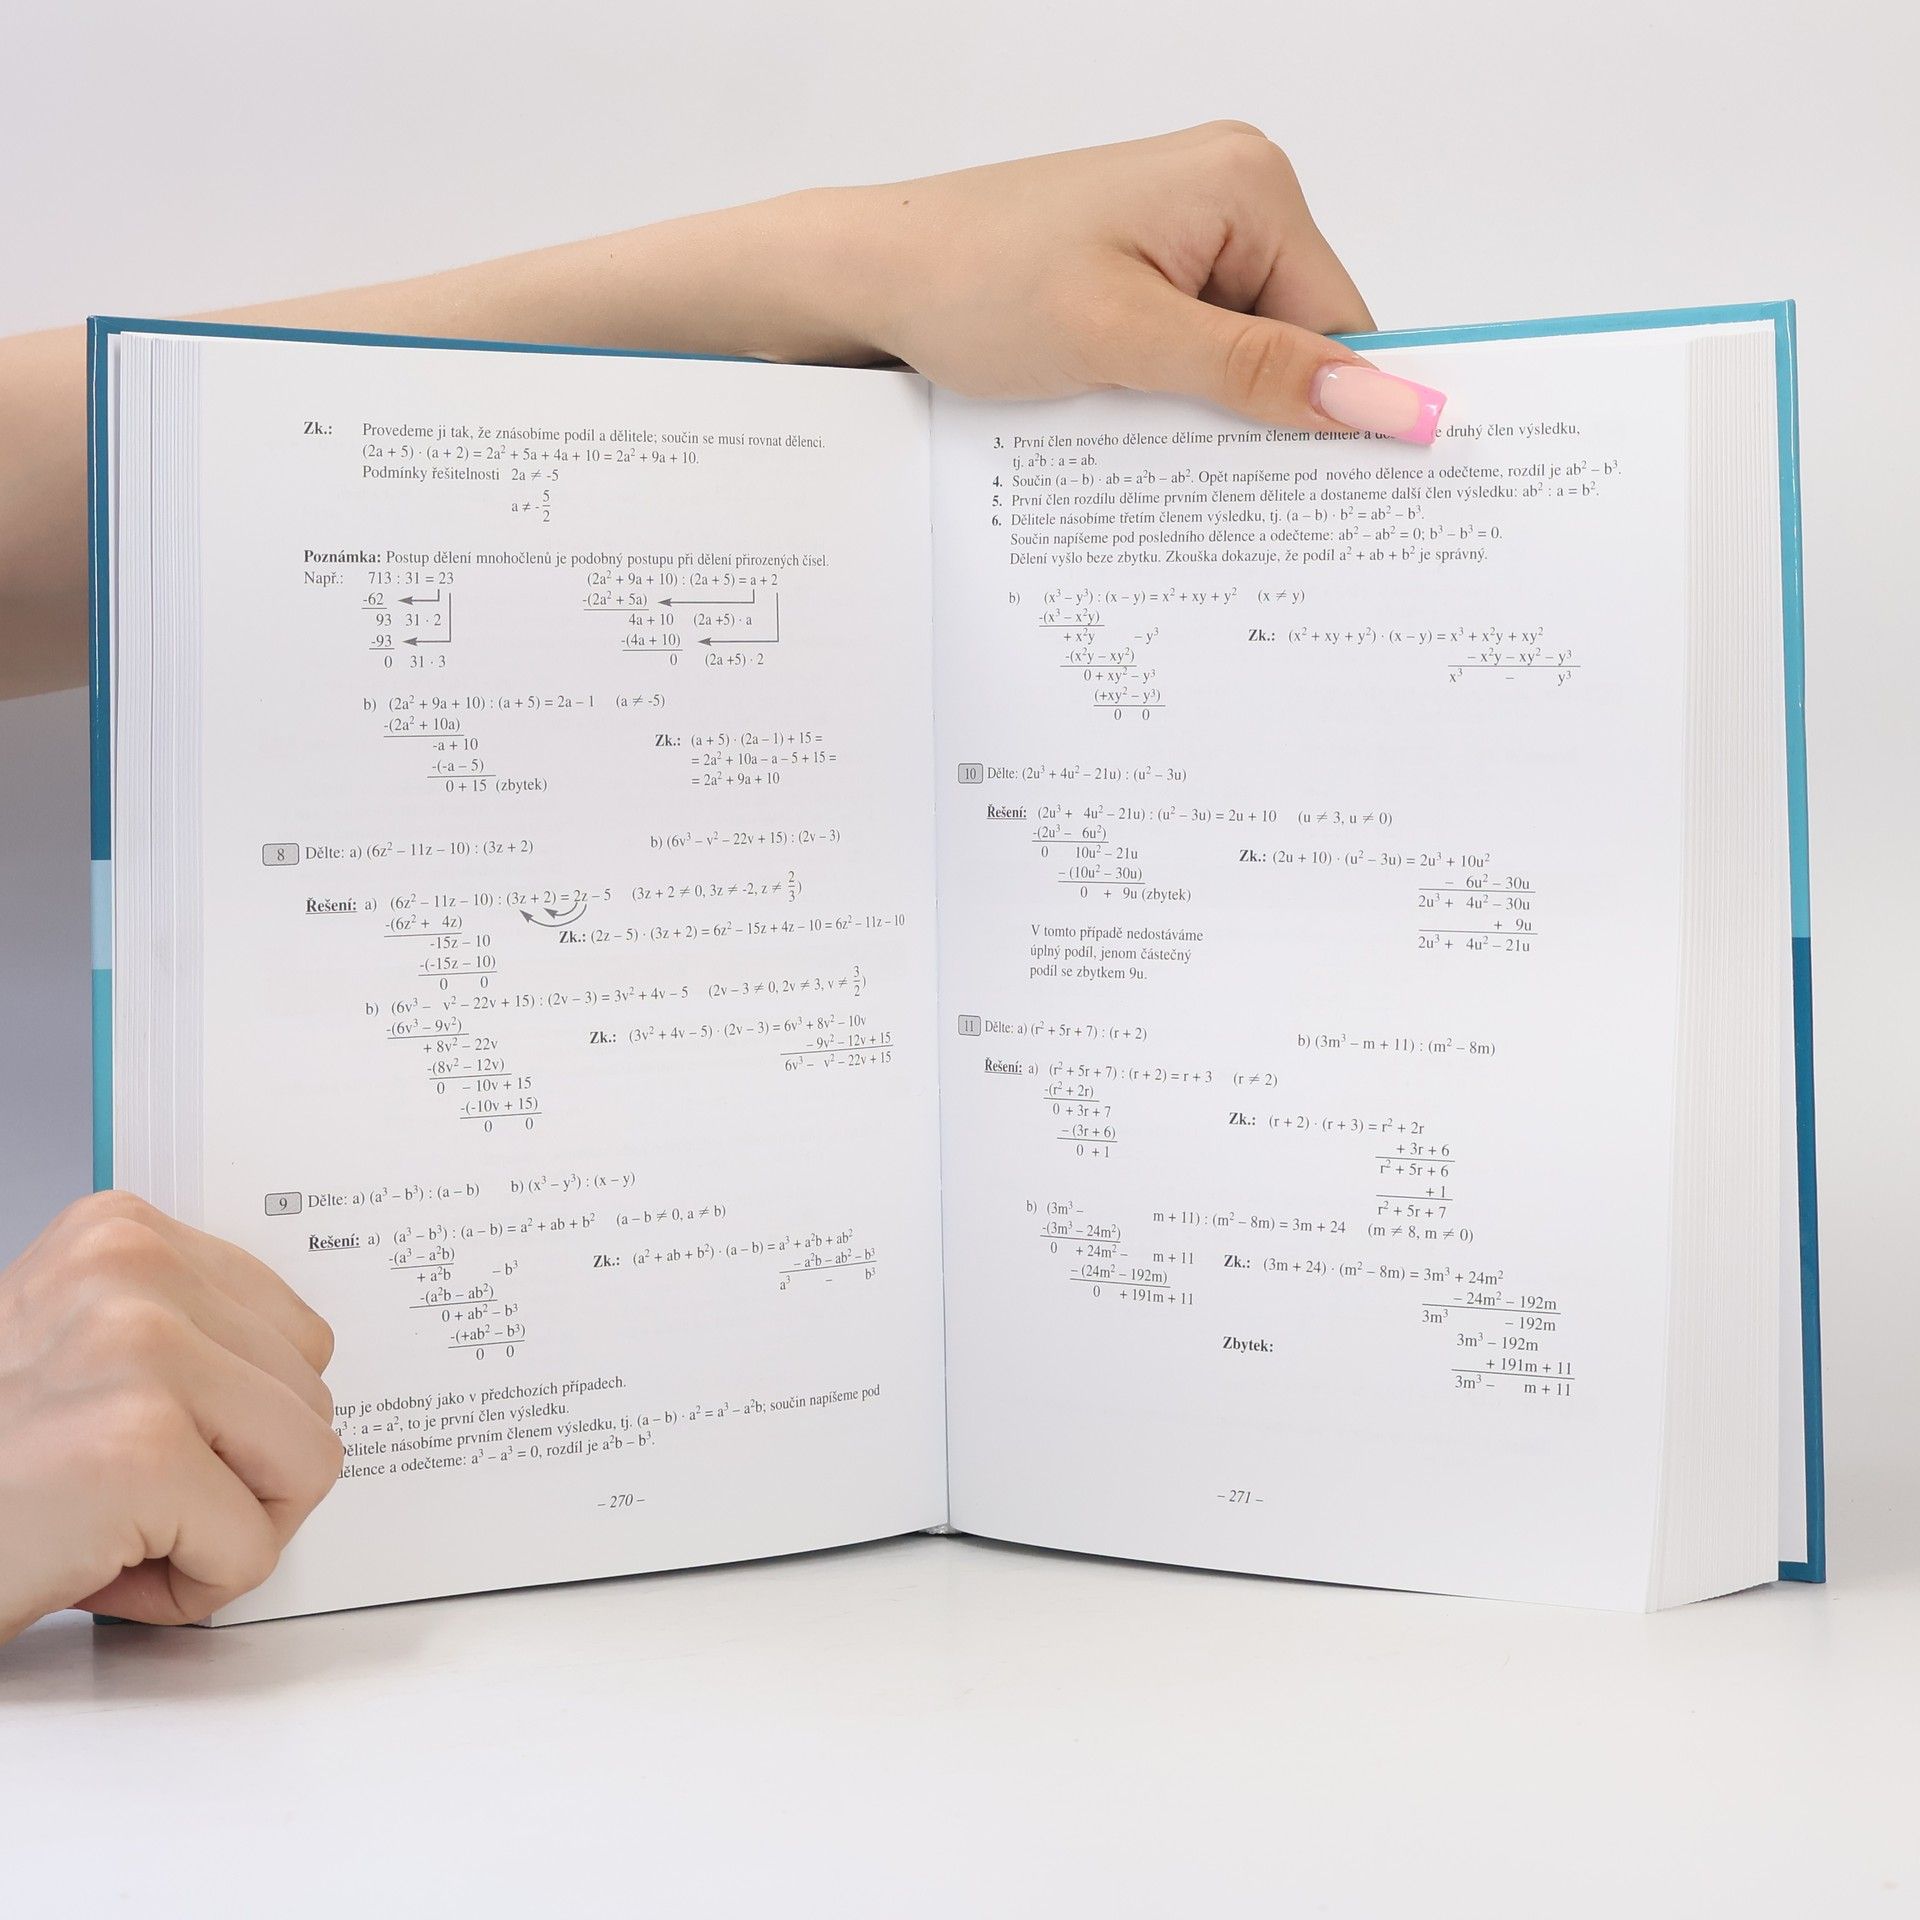 Zk.: Provedeme ji tak, že znásobíme podíl a dělitele; součin se musí rovnat dělenci.
(2a + 5) · (a + 2) = 2a² + 5a + 4a + 10 = 2a² + 9a + 10.
Podmínky řešitelnosti 2a ≠ -5
a ≠ -5/2
Poznámka: Postup dělení mnohočlenů je podobný postupu při dělení přirozených čísel.
Např.: 713 : 31 = 23 (2a² + 9a + 10) : (2a + 5) = a + 2
-62 -(2a² + 5a)
93 31 · 2 4a + 10 (2a +5) · a
-93 -(4a + 10)
0 31 · 3 0 (2a +5) · 2
b) (2a² + 9a + 10) : (a + 5) = 2a – 1 (a ≠ -5)
-(2a² + 10a)
-a + 10 Zk.: (a + 5) · (2a – 1) + 15 =
-(-a – 5) = 2a² + 10a – a – 5 + 15 =
0 + 15 (zbytek) = 2a² + 9a + 10
8 Dělte: a) (6z² – 11z – 10) : (3z + 2) b) (6v³ – v² – 22v + 15) : (2v – 3)
Řešení: a) (6z² – 11z – 10) : (3z + 2) = 2z – 5 (3z + 2 ≠ 0, 3z ≠ -2, z ≠ 2/3)
-(6z² + 4z)
-15z – 10 Zk.: (2z – 5) · (3z + 2) = 6z² – 15z + 4z – 10 = 6z² – 11z – 10
-(-15z – 10)
0 0
b) (6v³ – v² – 22v + 15) : (2v – 3) = 3v² + 4v – 5 (2v – 3 ≠ 0, 2v ≠ 3, v ≠ 3/2)
-(6v³ – 9v²) Zk.: (3v² + 4v – 5) · (2v – 3) = 6v³ + 8v² – 10v
+ 8v² – 22v – 9v² – 12v + 15
-(8v² – 12v) 6v³ – v² – 22v + 15
0 – 10v + 15
-(-10v + 15)
0 0
9 Dělte: a) (a³ – b³) : (a – b) b) (x³ – y³) : (x – y)
Řešení: a) (a³ – b³) : (a – b) = a² + ab + b² (a – b ≠ 0, a ≠ b)
-(a³ – a²b) Zk.: (a² + ab + b²) · (a – b) = a³ + a²b + ab²
+ a²b – b³ – a²b – ab² – b³
-(a²b – ab²) a³ – b³
0 + ab² – b³
-(+ab² – b³)
0 0
tup je obdobný jako v předchozích případech.
a³ : a = a², to je první člen výsledku.
Dělitele násobíme prvním členem výsledku, tj. (a – b) · a² = a³ – a²b; součin napíšeme pod
dělence a odečteme: a³ – a³ = 0, rozdíl je a²b – b³.
– 270 –
3. První člen nového dělence dělíme prvním členem dělitele a druhý člen výsledku,
tj. a²b : a = ab.
4. Součin (a – b) · ab = a²b – ab². Opět napíšeme pod nového dělence a odečteme, rozdíl je ab² – b³.
5. První člen rozdílu dělíme prvním členem dělitele a dostaneme další člen výsledku: ab² : a = b².
6. Dělitele násobíme třetím členem výsledku, tj. (a – b) · b² = ab² – b³.
Součin napíšeme pod posledního dělence a odečteme: ab² – ab² = 0; b³ – b³ = 0.
Dělení vyšlo beze zbytku. Zkouška dokazuje, že podíl a² + ab + b² je správný.
b) (x³ – y³) : (x – y) = x² + xy + y² (x ≠ y)
-(x³ – x²y)
+ x²y – y³ Zk.: (x² + xy + y²) · (x – y) = x³ + x²y + xy²
-(x²y – xy²) – x²y – xy² – y³
0 + xy² – y³ x³ – y³
(+xy² – y³)
0 0
10 Dělte: (2u³ + 4u² – 21u) : (u² – 3u)
Řešení: (2u³ + 4u² – 21u) : (u² – 3u) = 2u + 10 (u ≠ 3, u ≠ 0)
-(2u³ – 6u²)
0 10u² – 21u Zk.: (2u + 10) · (u² – 3u) = 2u³ + 10u²
– (10u² – 30u) – 6u² – 30u
0 + 9u (zbytek) 2u³ + 4u² – 30u
+ 9u
2u³ + 4u² – 21u
V tomto případě nedostáváme
úplný podíl, jenom částečný
podíl se zbytkem 9u.
11 Dělte: a) (r² + 5r + 7) : (r + 2) b) (3m³ – m + 11) : (m² – 8m)
Řešení: a) (r² + 5r + 7) : (r + 2) = r + 3 (r ≠ 2)
-(r² + 2r)
0 + 3r + 7 Zk.: (r + 2) · (r + 3) = r² + 2r
– (3r + 6) + 3r + 6
0 + 1 r² + 5r + 6
+ 1
r² + 5r + 7
b) (3m³ – m + 11) : (m² – 8m) = 3m + 24 (m ≠ 8, m ≠ 0)
-(3m³ – 24m²)
0 + 24m² – m + 11 Zk.: (3m + 24) · (m² – 8m) = 3m³ + 24m²
– (24m² – 192m) – 24m² – 192m
0 + 191m + 11 3m³ – 192m
Zbytek: 3m³ – 192m
+ 191m + 11
3m³ – m + 11
– 271 –